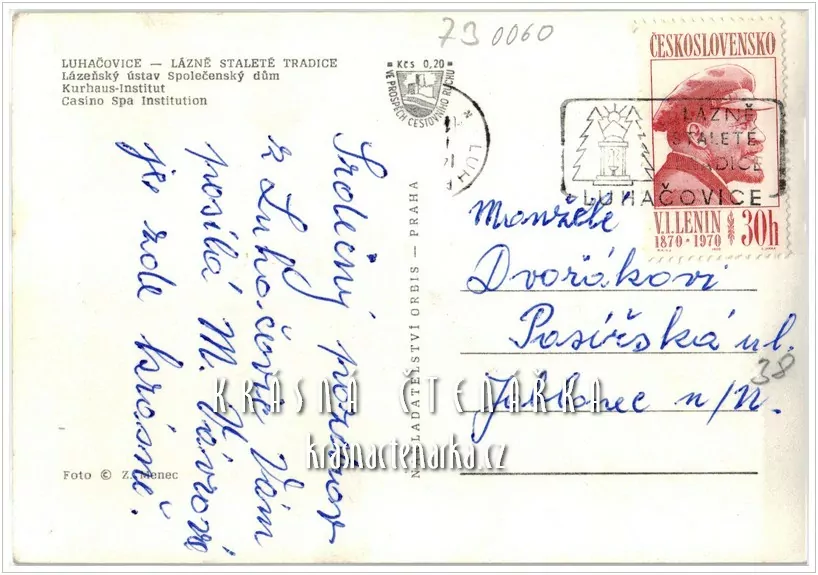 73 0060
LUHAČOVICE — LÁZNĚ STALETÉ TRADICE
Lázeňský ústav Společenský dům
Kurhaus-Institut
Casino Spa Institution
Kčs 0,20
VE PROSPĚCH CESTOVNÍHO RUCHU
LUH
ČESKOSLOVENSKO
V.I.LENIN
1870 • 1970
30h
LÁZNĚ
STALETÉ
TRADICE
LUHAČOVICE
Srdečný pozdrav
z Luhačovic Vám
posílá M. Vávrová
je zde krásně.
NAKLADATELSTVÍ ORBIS — PRAHA
Manželé
Dvořákovi
Pasířská ul.
38
Jablonec n/N.
Foto © Z. Menec
KRÁSNÁ ČTENÁŘKA
krasnactenarka.cz